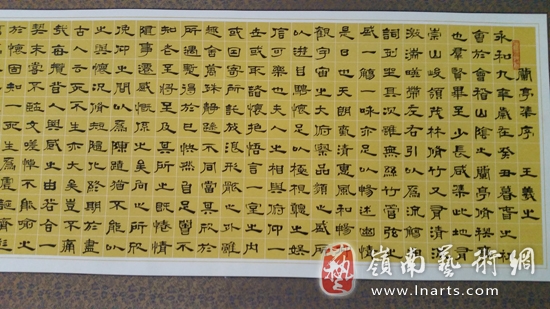 蘭亭集序 王羲之
永和九年歲在癸丑暮春之初
會於會稽山陰之蘭亭脩禊事
也群賢畢至少長咸集此地有
崇山峻領茂林脩竹又有清流
激湍暎帶左右引以為流觴曲
水列坐其次雖無絲竹管弦之
盛一觴一詠亦足以暢敘幽情
是日也天朗氣清惠風和暢仰
觀宇宙之大俯察品類之盛所
以遊目騁懷足以極視聽之娛
信可樂也夫人之相與俯仰一
世或取諸懷抱悟言一室之內
或因寄所託放浪形骸之外雖
趣舍萬殊靜躁不同當其欣於
所遇暫得於己快然自足不
知老之將至及其所之既倦情
隨事遷感慨係之矣向之所欣
俛仰之間以為陳跡猶不能不
以之興懷況脩短隨化終期於
盡古人云死生亦大矣豈不痛
哉每攬昔人興感之由若合一
契未嘗不臨文嗟悼不能喻之
於懷固知一死生為虛誕齊彭
嶺南藝術網
www.lnarts.com